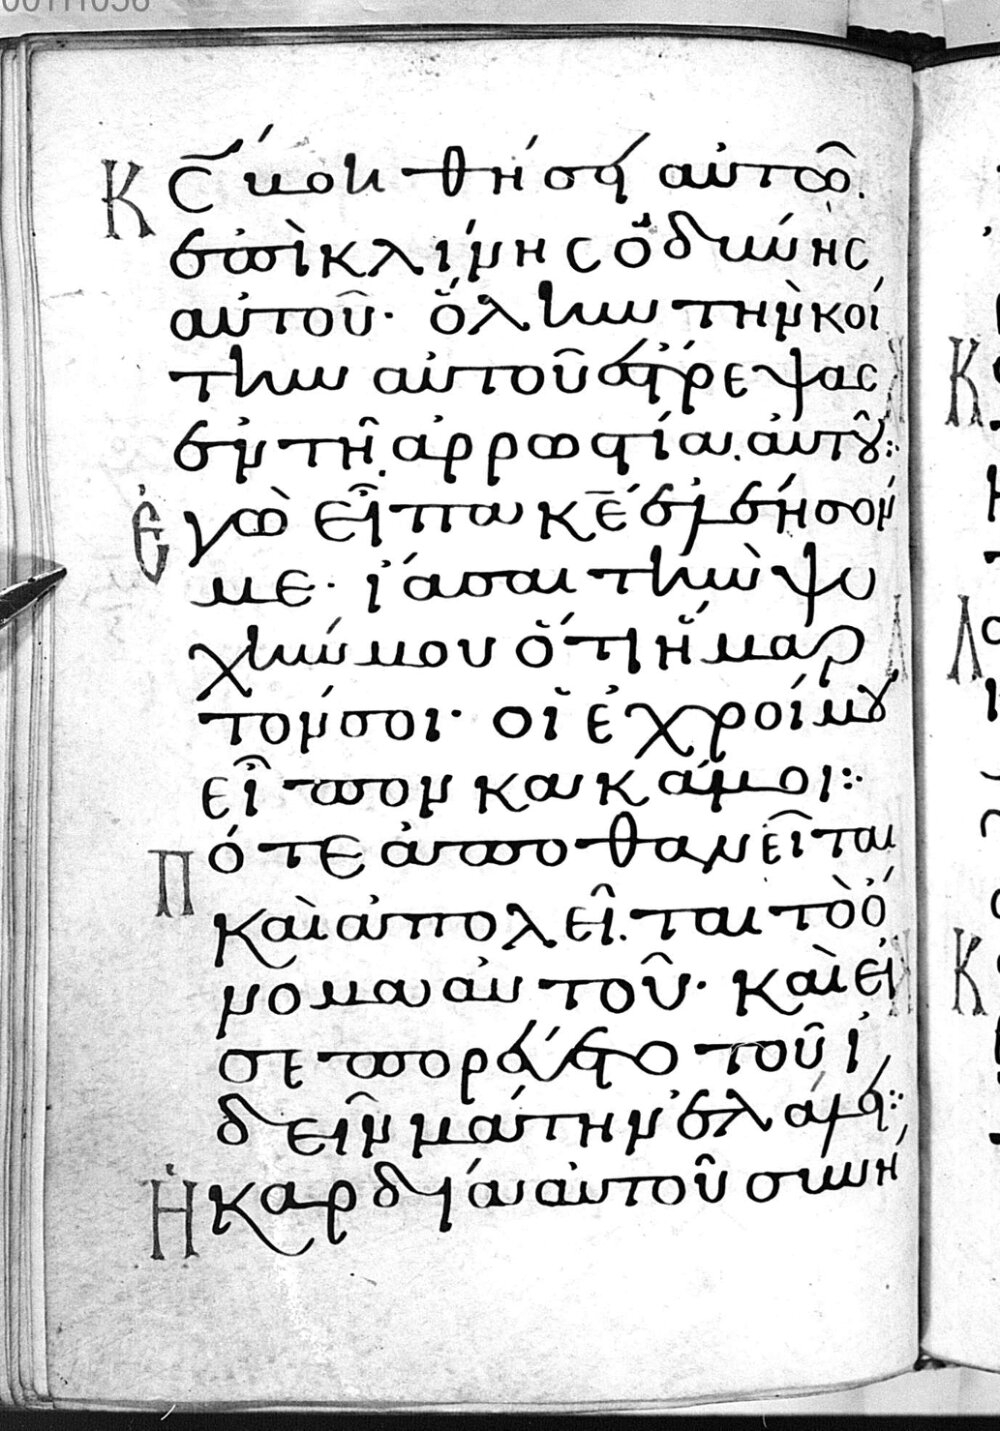 00111038
Κς βοηθήσαι αὐτῶ.
ἐπὶ κλίνης ὀδύνης
αὐτοῦ· ὅλην τὴν κοί
την αὐτοῦ ἔστρεψας
ἐν τῆ ἀρρωστία αὐτοῦ:
Ἐγὼ εἶπα κε ἐλέησόν
με· ἴασαι τὴν ψυ
χήν μου ὅτι ἥμαρ
τόν σοι· οἱ ἐχθροί μου
εἶπον κακά μοι:
Πότε ἀποθανεῖται
καὶ ἀπολεῖται τὸ ὄ
νομα αὐτοῦ· καὶ εἰ
σεπορεύετο τοῦ ἰ
δεῖν μάτην ἐλάλει:
Ἡ καρδία αὐτοῦ συνή